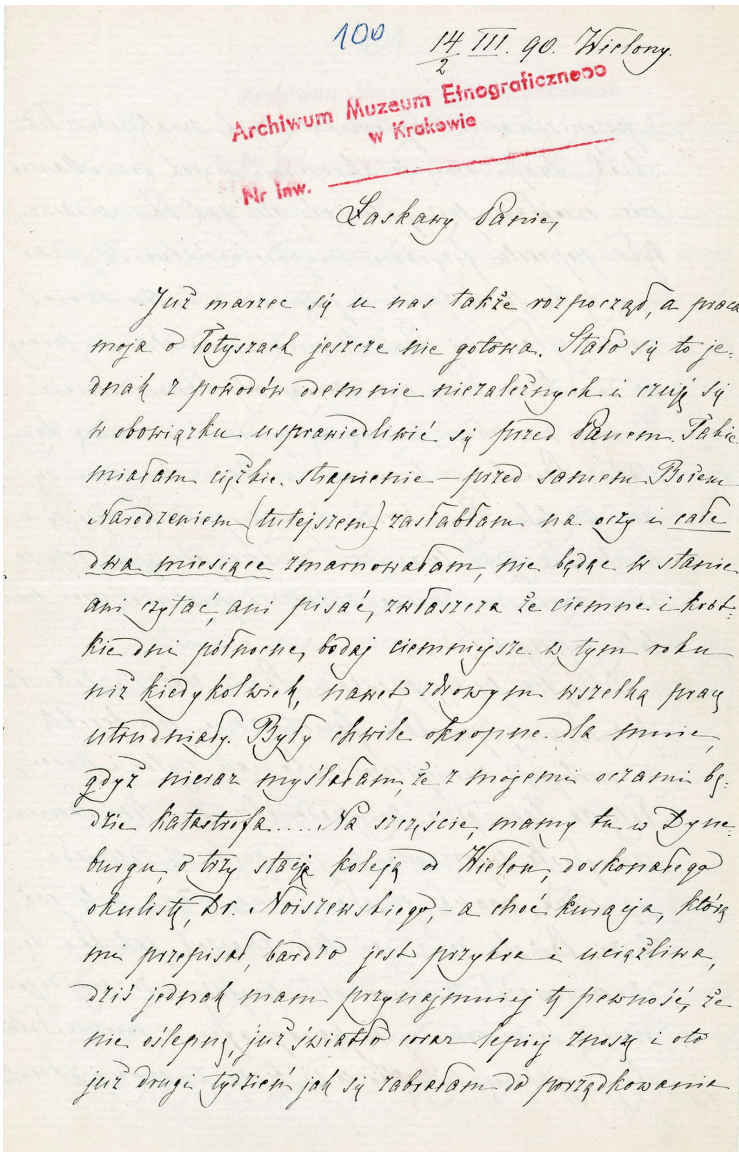 100
14/2 III. 90. Wielony.
Archiwum Muzeum Etnograficznego
w Krakowie
Nr inw.
Łaskawy Panie,
Już marzec się u nas także rozpoczął, a praca
moja o Łotyszach jeszcze nie gotowa. Stało się to je-
dnak z powodów odemnie niezależnych i czuję się
w obowiązku usprawiedliwić się przed Panem. Takie
miałam ciężkie strapienie – przed samem Bożem
Narodzeniem (tutejszem) zasłabłam na oczy i całe
dwa miesiące zmarnowałam, nie będąc w stanie
ani czytać, ani pisać, zwłaszcza że ciemne i krót-
kie dni północne, bodaj ciemniejsze w tym roku
niż kiedykolwiek, nawet zdrowym wszelką pracę
utrudniały. Były chwile okropne dla mnie,
gdyż nieraz myślałam, że z mojemi oczami bę-
dzie katastrofa..... Na szczęście, mamy tu w Dyne-
burgu, o trzy stacje koleją od Wielon, doskonałego
okulistę, Dr. Noiszewskiego, – a choć kuracja, którą
mi przepisał, bardzo jest przykra i uciążliwa,
dziś jednak mam przynajmniej tę pewność, że
nie oślepnę, już światło coraz lepiej znoszę i oto
już drugi tydzień jak się zabrałam do porządkowania